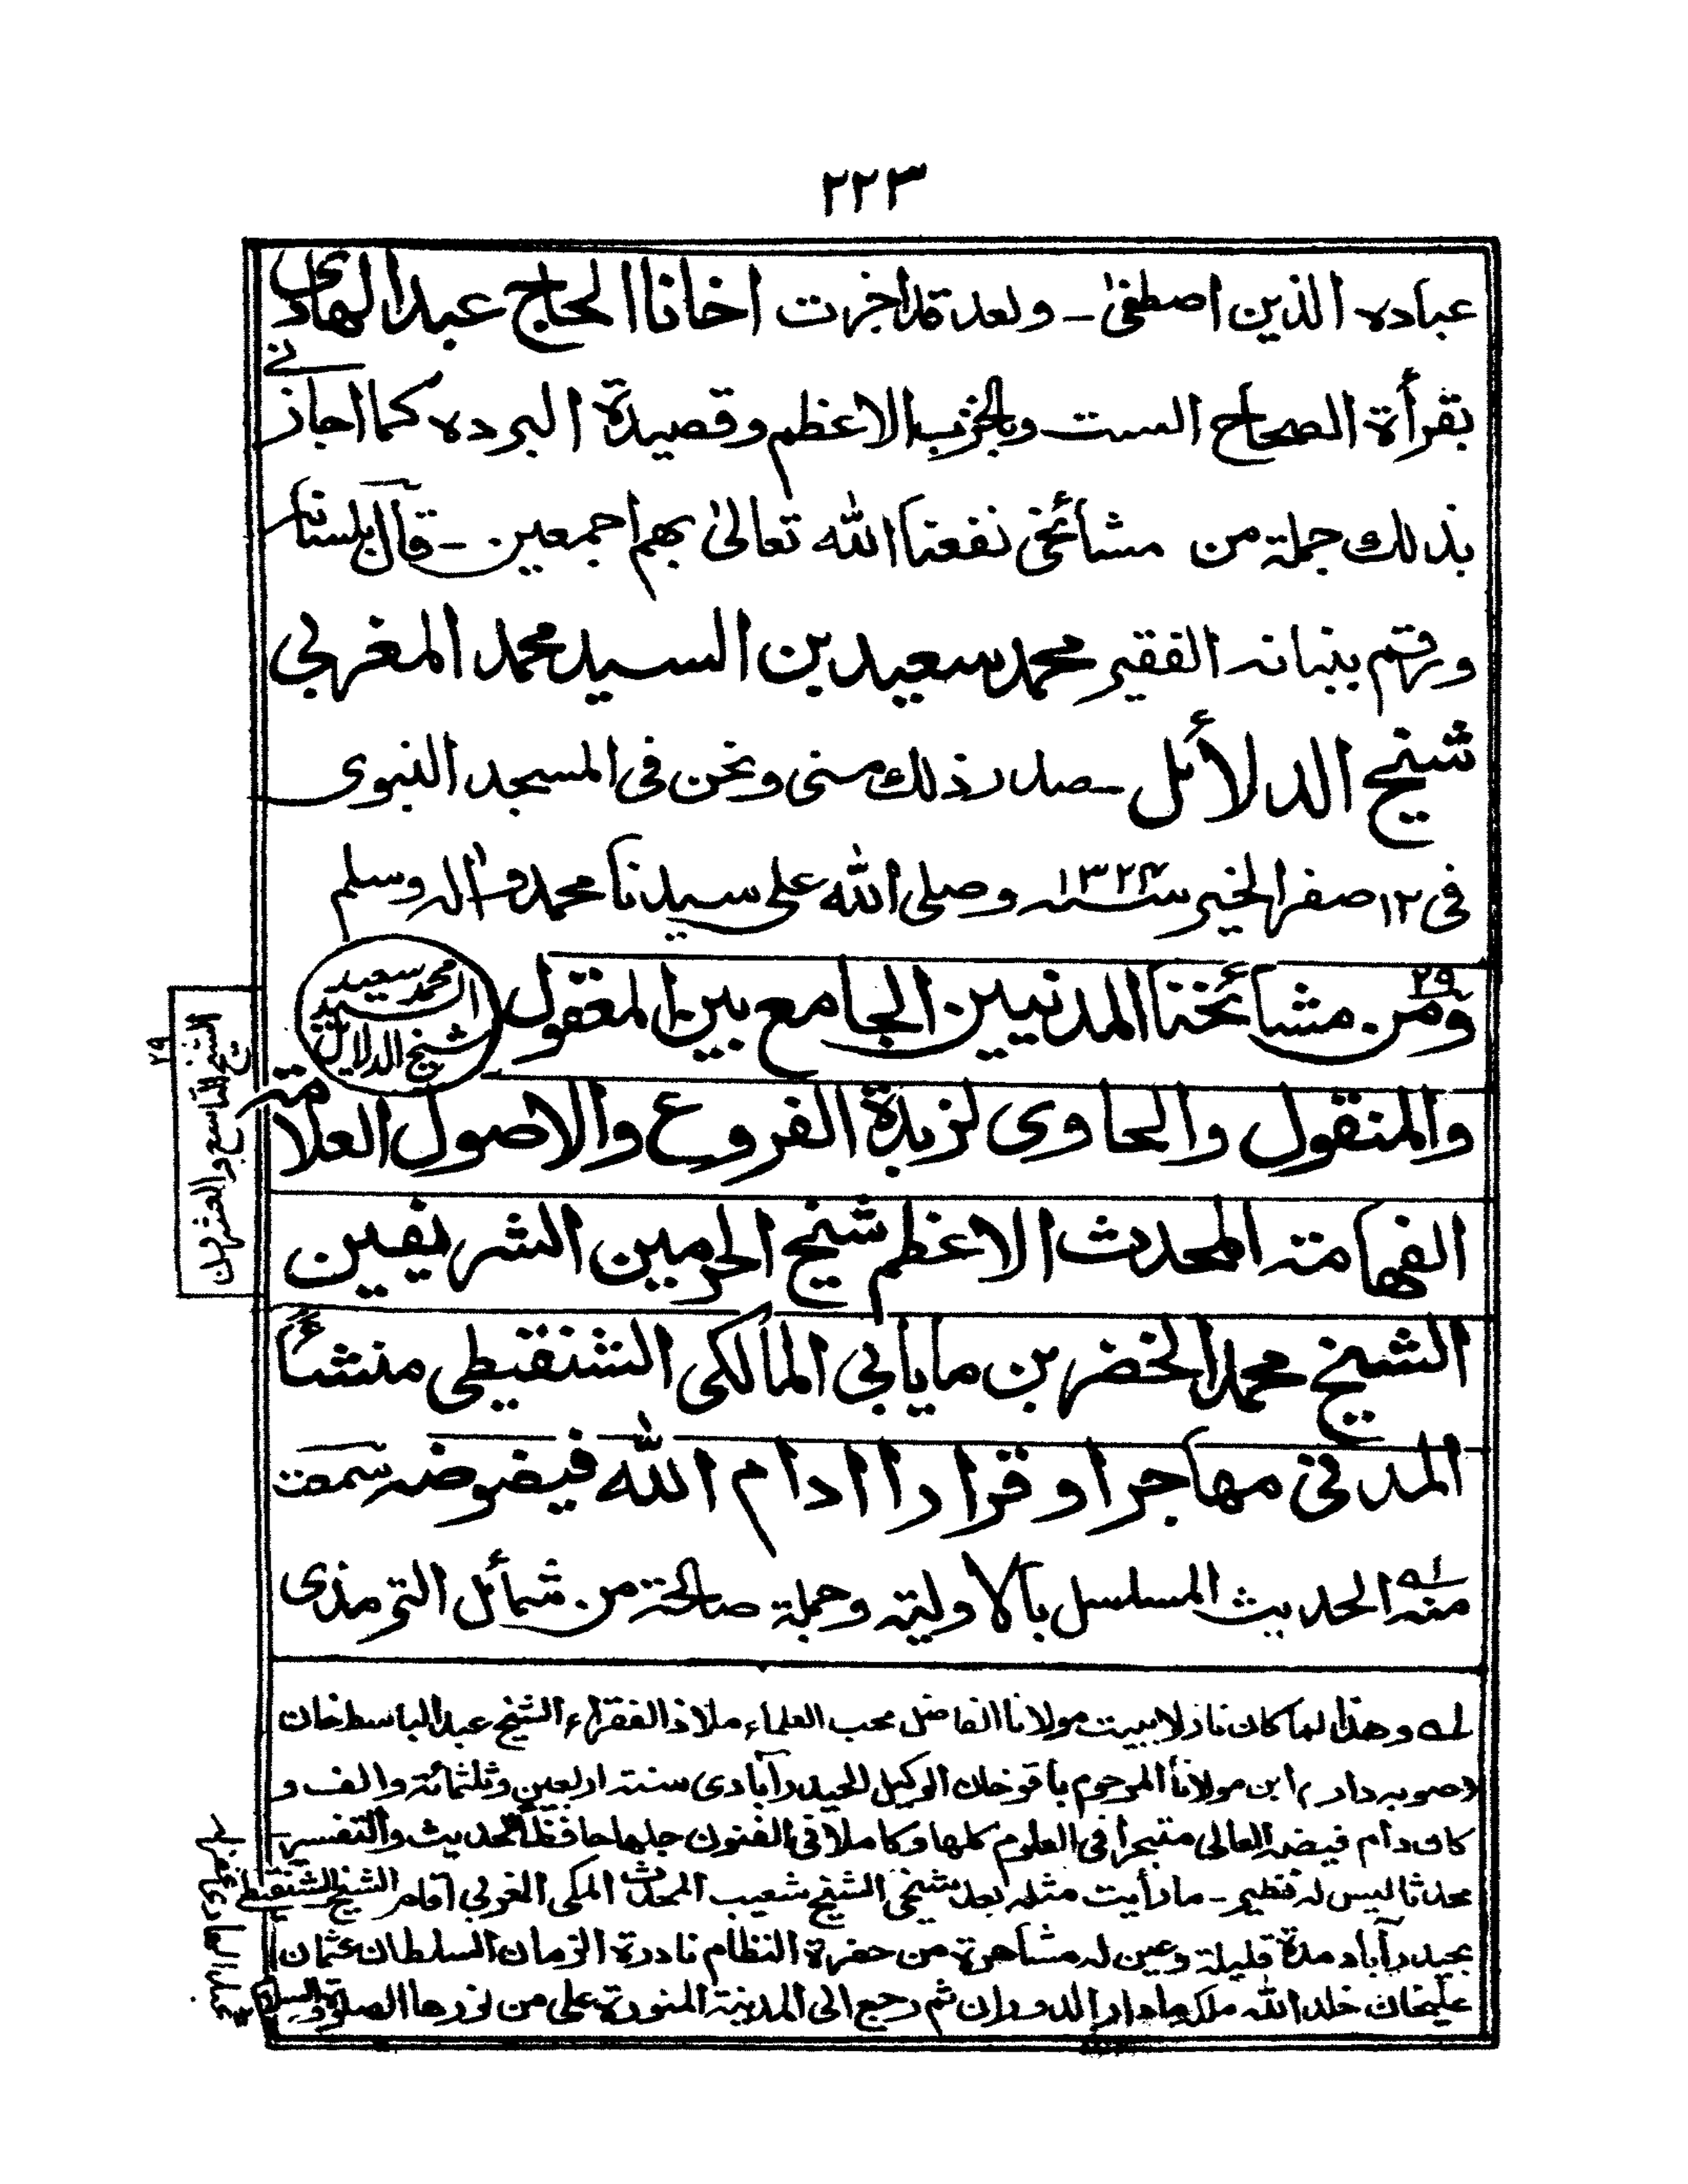 ٢٢٣
عباده الذين اصطفىٰ ـ وبعد قد اجزت اخانا الحاج عبد الهادى
بقرأة الصحاح الست وبالحزب الاعظم وقصيدة البرده كما اجازنے
بذلك جملة من مشائخى نفعنا الله تعالىٰ بهم اجمعين ـ قال بلسانه
ورقم ببنانه الفقير محمد سعيد بن السيد محمد المغربى
شيخ الدلائل ـ صدر ذلك منى ونحن فى المسجد النبوى
فى ١٢ صفر الخير سنه ١٣٢٤ وصلى الله على سيدنا محمد واٰله وسلم
محمد سعيد
السيد
شيخ الدلائل
٢٩
ومن مشائخنا المدنيين الجامع بين المعقول
والمنقول والحاوى لزبدة الفروع والاصول العلامة
الفهامة المحدث الاعظم شيخ الحرمين الشريفين
الشيخ محمد الخضر بن مايابى المالكى الشنقيطى منشئاً
المدنى مهاجرا وقرارا ادام الله فيوضه سمعت
منه الحديث المسلسل بالاولية وجملة صالحة من شمائل الترمذى
٢٩
الشيخ التاسع والعشرون
لے وهذا لما كان نازلا ببيت مولانا الفاضل محب العلماء ملاذ الفقراء الشيخ عبد الباسط خان
(صوبه دار) ابن مولانا المرحوم ياقوخان الوكيل الحيدرآبادى سنة اربعين وثلثمائة والف و
كان دام فيضه العالى متبحرا فى العلوم كلها وكاملا فى الفنون جلها حافظا لحديث والتفسير
محدثا ليس له نظير ـ ما رأيت مثله بعد شيخى الشيخ شعيب المحدث المكى المغربى اقام الشيخ الشنقيطى
بحيدرآباد مدة قليلة وعين له مشاهرة من حضرة النظام نادرة الزمان السلطان عثمان
عليخان خلد الله ملكه مادار الدوران ثم رجع الى المدينة المنورة على من نورها الصلوة والسلام